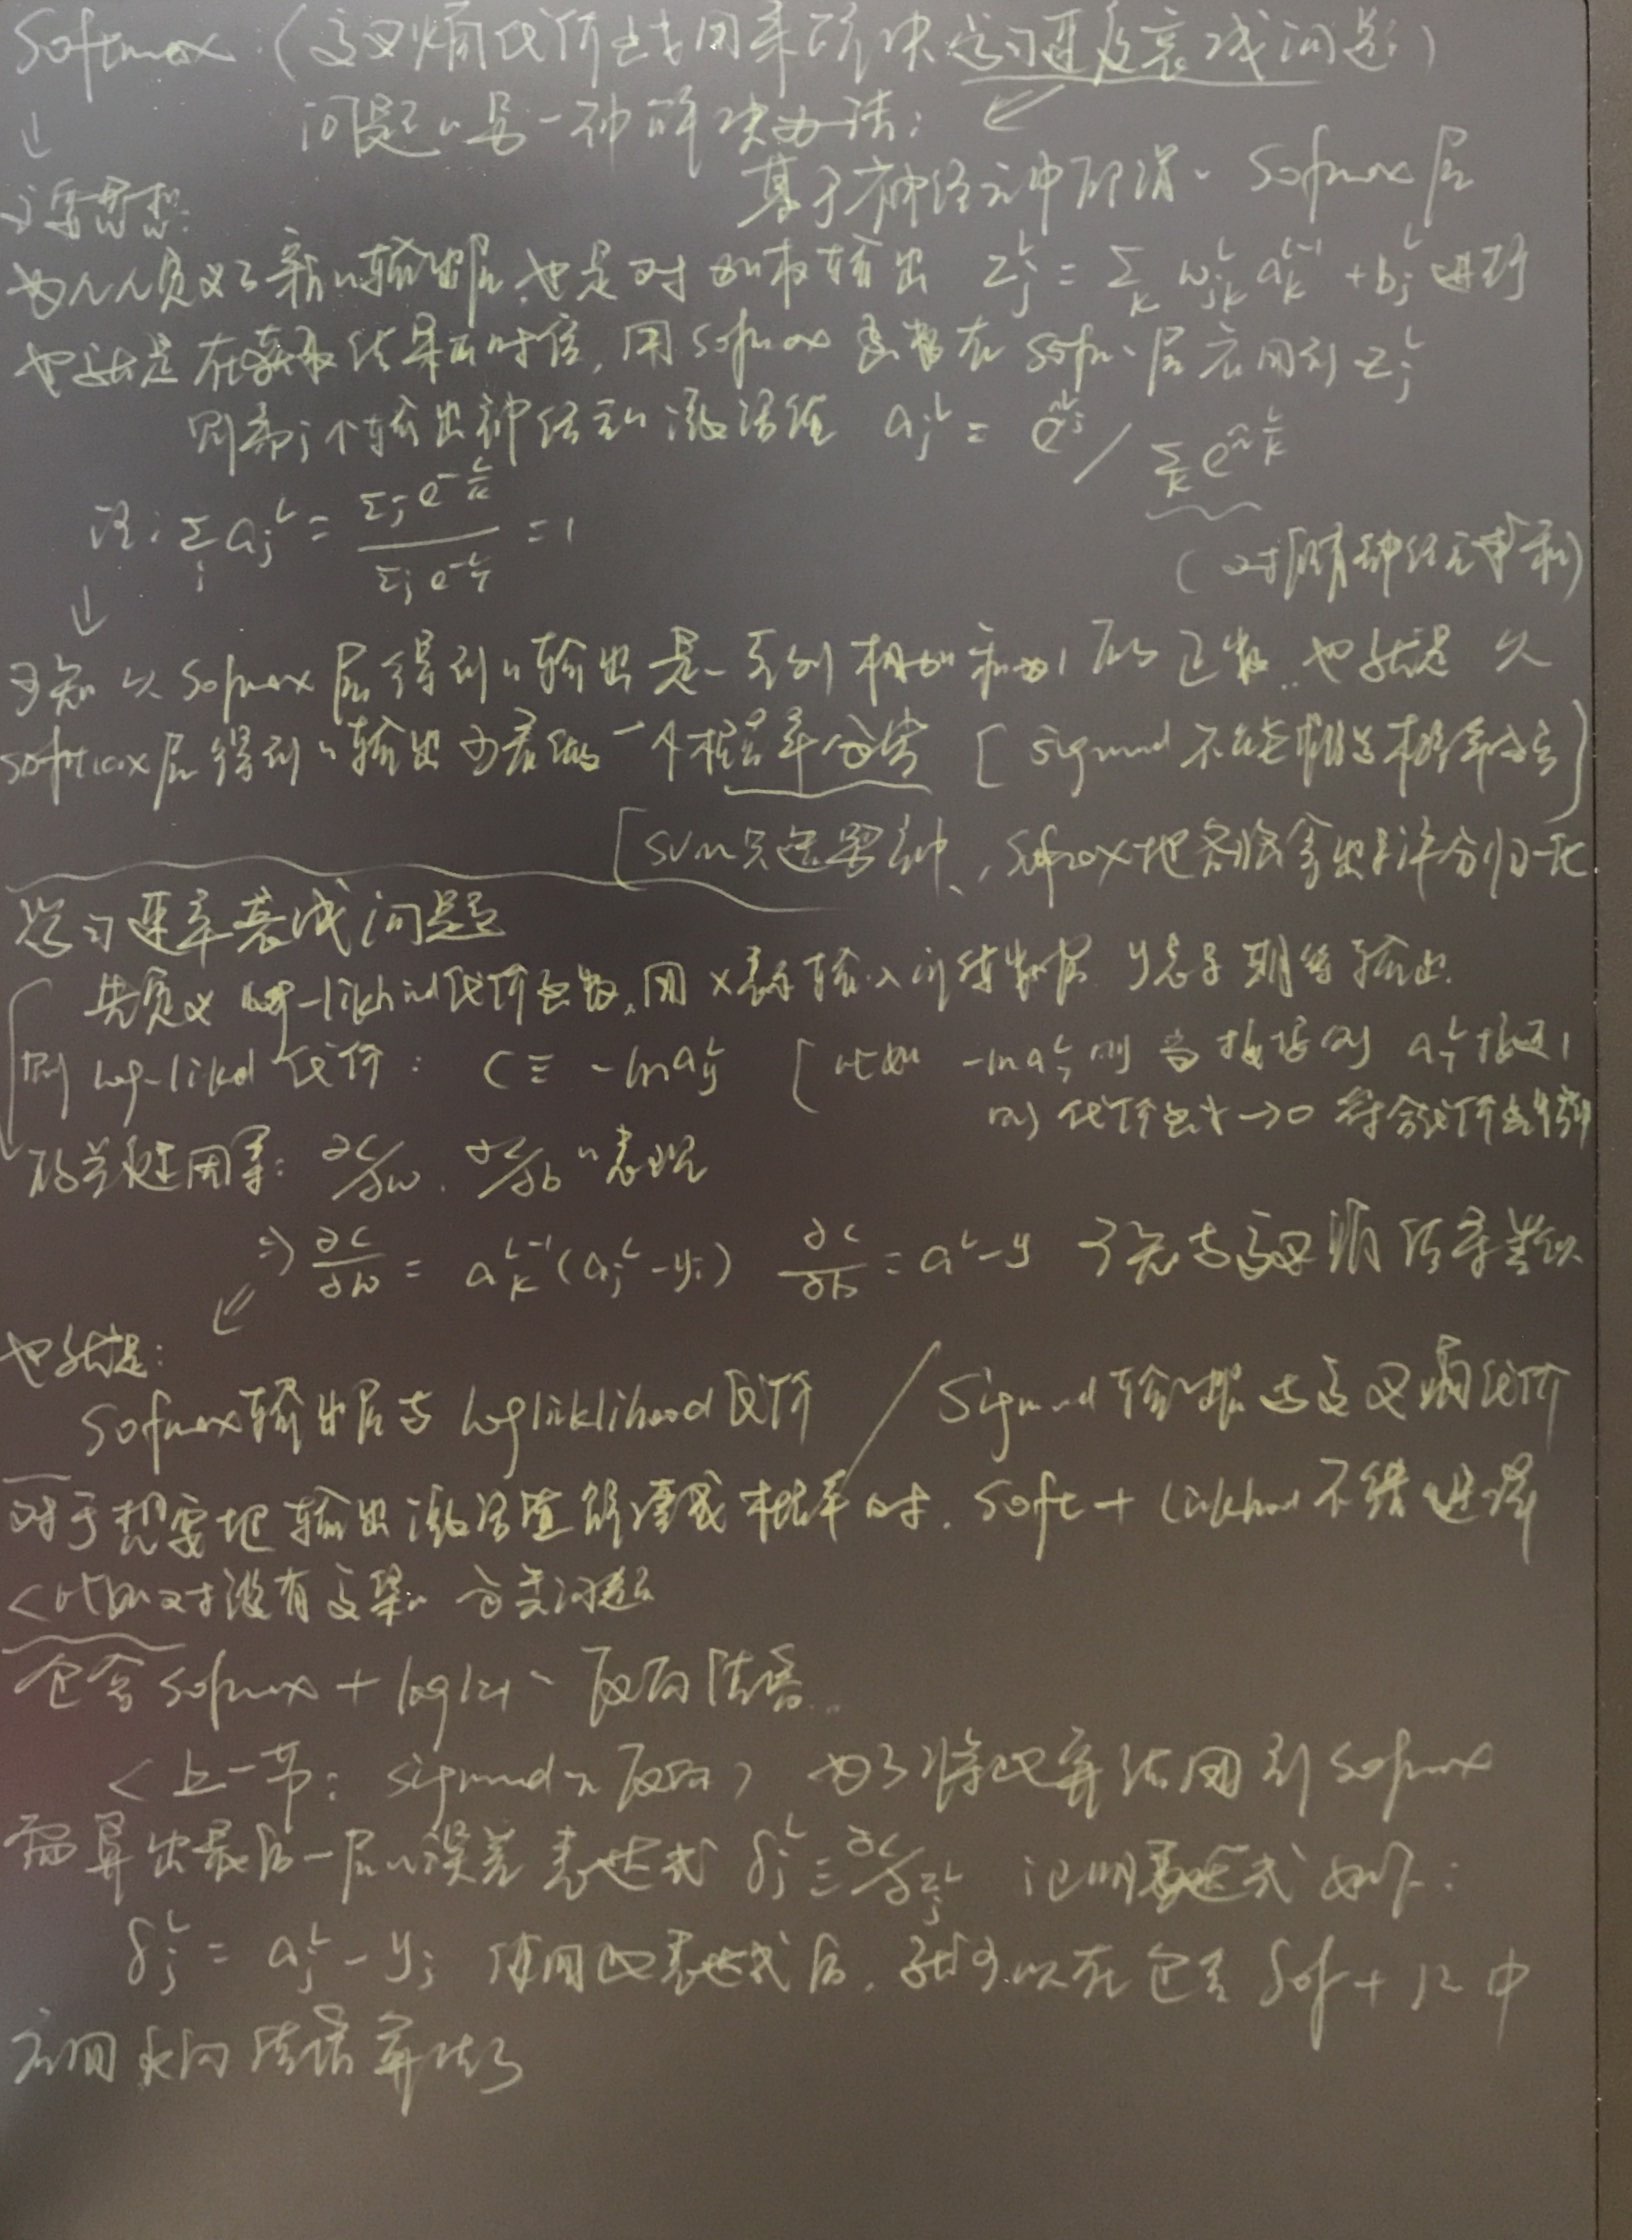 Softmax:(交叉熵代价函数用来解决学习速度衰减问题)
问题的另一种解决办法:
基于神经元中所谓的Sofmax层
主要思想:
为NN定义了新的输出层,也是对加权输出 z_j^L = Σ_k w_jk^L a_k^{L-1} + b_j^L 进行
也就是在获取结果的时候,用Sofmax函数在Sofm、层应用到z_j^L
则第j个输出神经元的激活值 a_j^L = e^{z_j^L} / Σ_k e^{z_k^L}
(对所有神经元求和)
Σ_j a_j^L = = 1
可知 从Sofmax层得到的输出是一系列相加和为1的正数..也就是 从
softmax层得到的输出可看做一个概率分布 [sigmod不能 概率分布]
[SVM只选 , Sofmax 输出 评分归一化
学习速率衰减问题
先定义log-likhind代价函数,用x表示输入训练数据 y表示期待输出.
则log-likd代价: C≡ -ln a_y^L [比如 -ln a_7^L 则当 a_7^L接近1
则代价函数→0 符合代价函数
的关键用来: ∂C/∂w . ∂C/∂b 的表现
⇒ ∂C/∂w = a_k^{L-1}(a_j^L - y_j) ∂C/∂b = a^L - y 可知与交叉熵 类似
也就是:
Sofmax输出层与logliklihood代价 / Sigmod输出层与交叉熵代价
对于想要把输出激活值解读成概率时. Soft + likhod 不错选择
<比如对没有交集的分类问题
包含sofmax + log 反向传播..
<上一节: sigmod 反向> 为了将此算法用到Sofmax
需算出最后一层的误差表达式 δ_j^L ≡ ∂C/∂z_j^L 证明表达式如下:
δ_j^L = a_j^L - y_j 使用此表达式后,就可以在包含Sof + 中
应用反向传播算法了